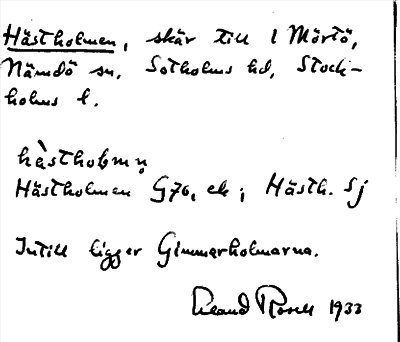 Hästholmen, skär till 1 Mörtö,
Nämdö sn, Sotholms hd, Stock-
holms l.
hàstholmn̥
Hästholmen G70, ek; Hästh. Sj
Intill ligger Gimmerholmarna.
Rosell 1933